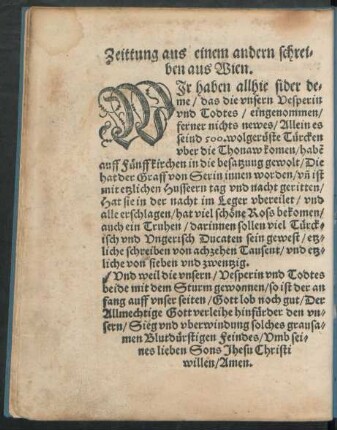 Zeittung aus einem andern schrei-
ben aus Wien.
WIr haben allhie sider de-
me / das die vnsern Vesperin
vnd Todtes / eingenommen /
ferner nichts newes / Allein es
seind 500. wolgerüste Türcken
vber die Thonaw komen / habē
auff Fünffkirchen in die besatzung gewolt / Die
hat der Graff von Serin innen worden / vñ ist
mit etzlichen Hussern tag vnd nacht geritten /
Hat sie in der nacht im Leger vbereilet / vnd
alle erschlagen / hat viel schöne Ross bekomen /
auch ein Truhen / darinnen sollen viel Türck-
isch vnd Vngerisch Ducaten sein gewest / etz-
liche schreiben von achzehen Tausent / vnd etz-
liche von sieben vnd zwentzig.
Vnd weil die vnsern / Vesperin vnd Todtes
beide mit dem Sturm gewonnen / so ist der an
fang auff vnser seiten / Gott lob noch gut / Der
Allmechtige Gott verleihe hinfürder den vn-
sern / Sieg vnd vberwindung solches grausa-
men Blutdürstigen Feindes / Vmb sei-
nes lieben Sons Jhesu Christi
willen / Amen.